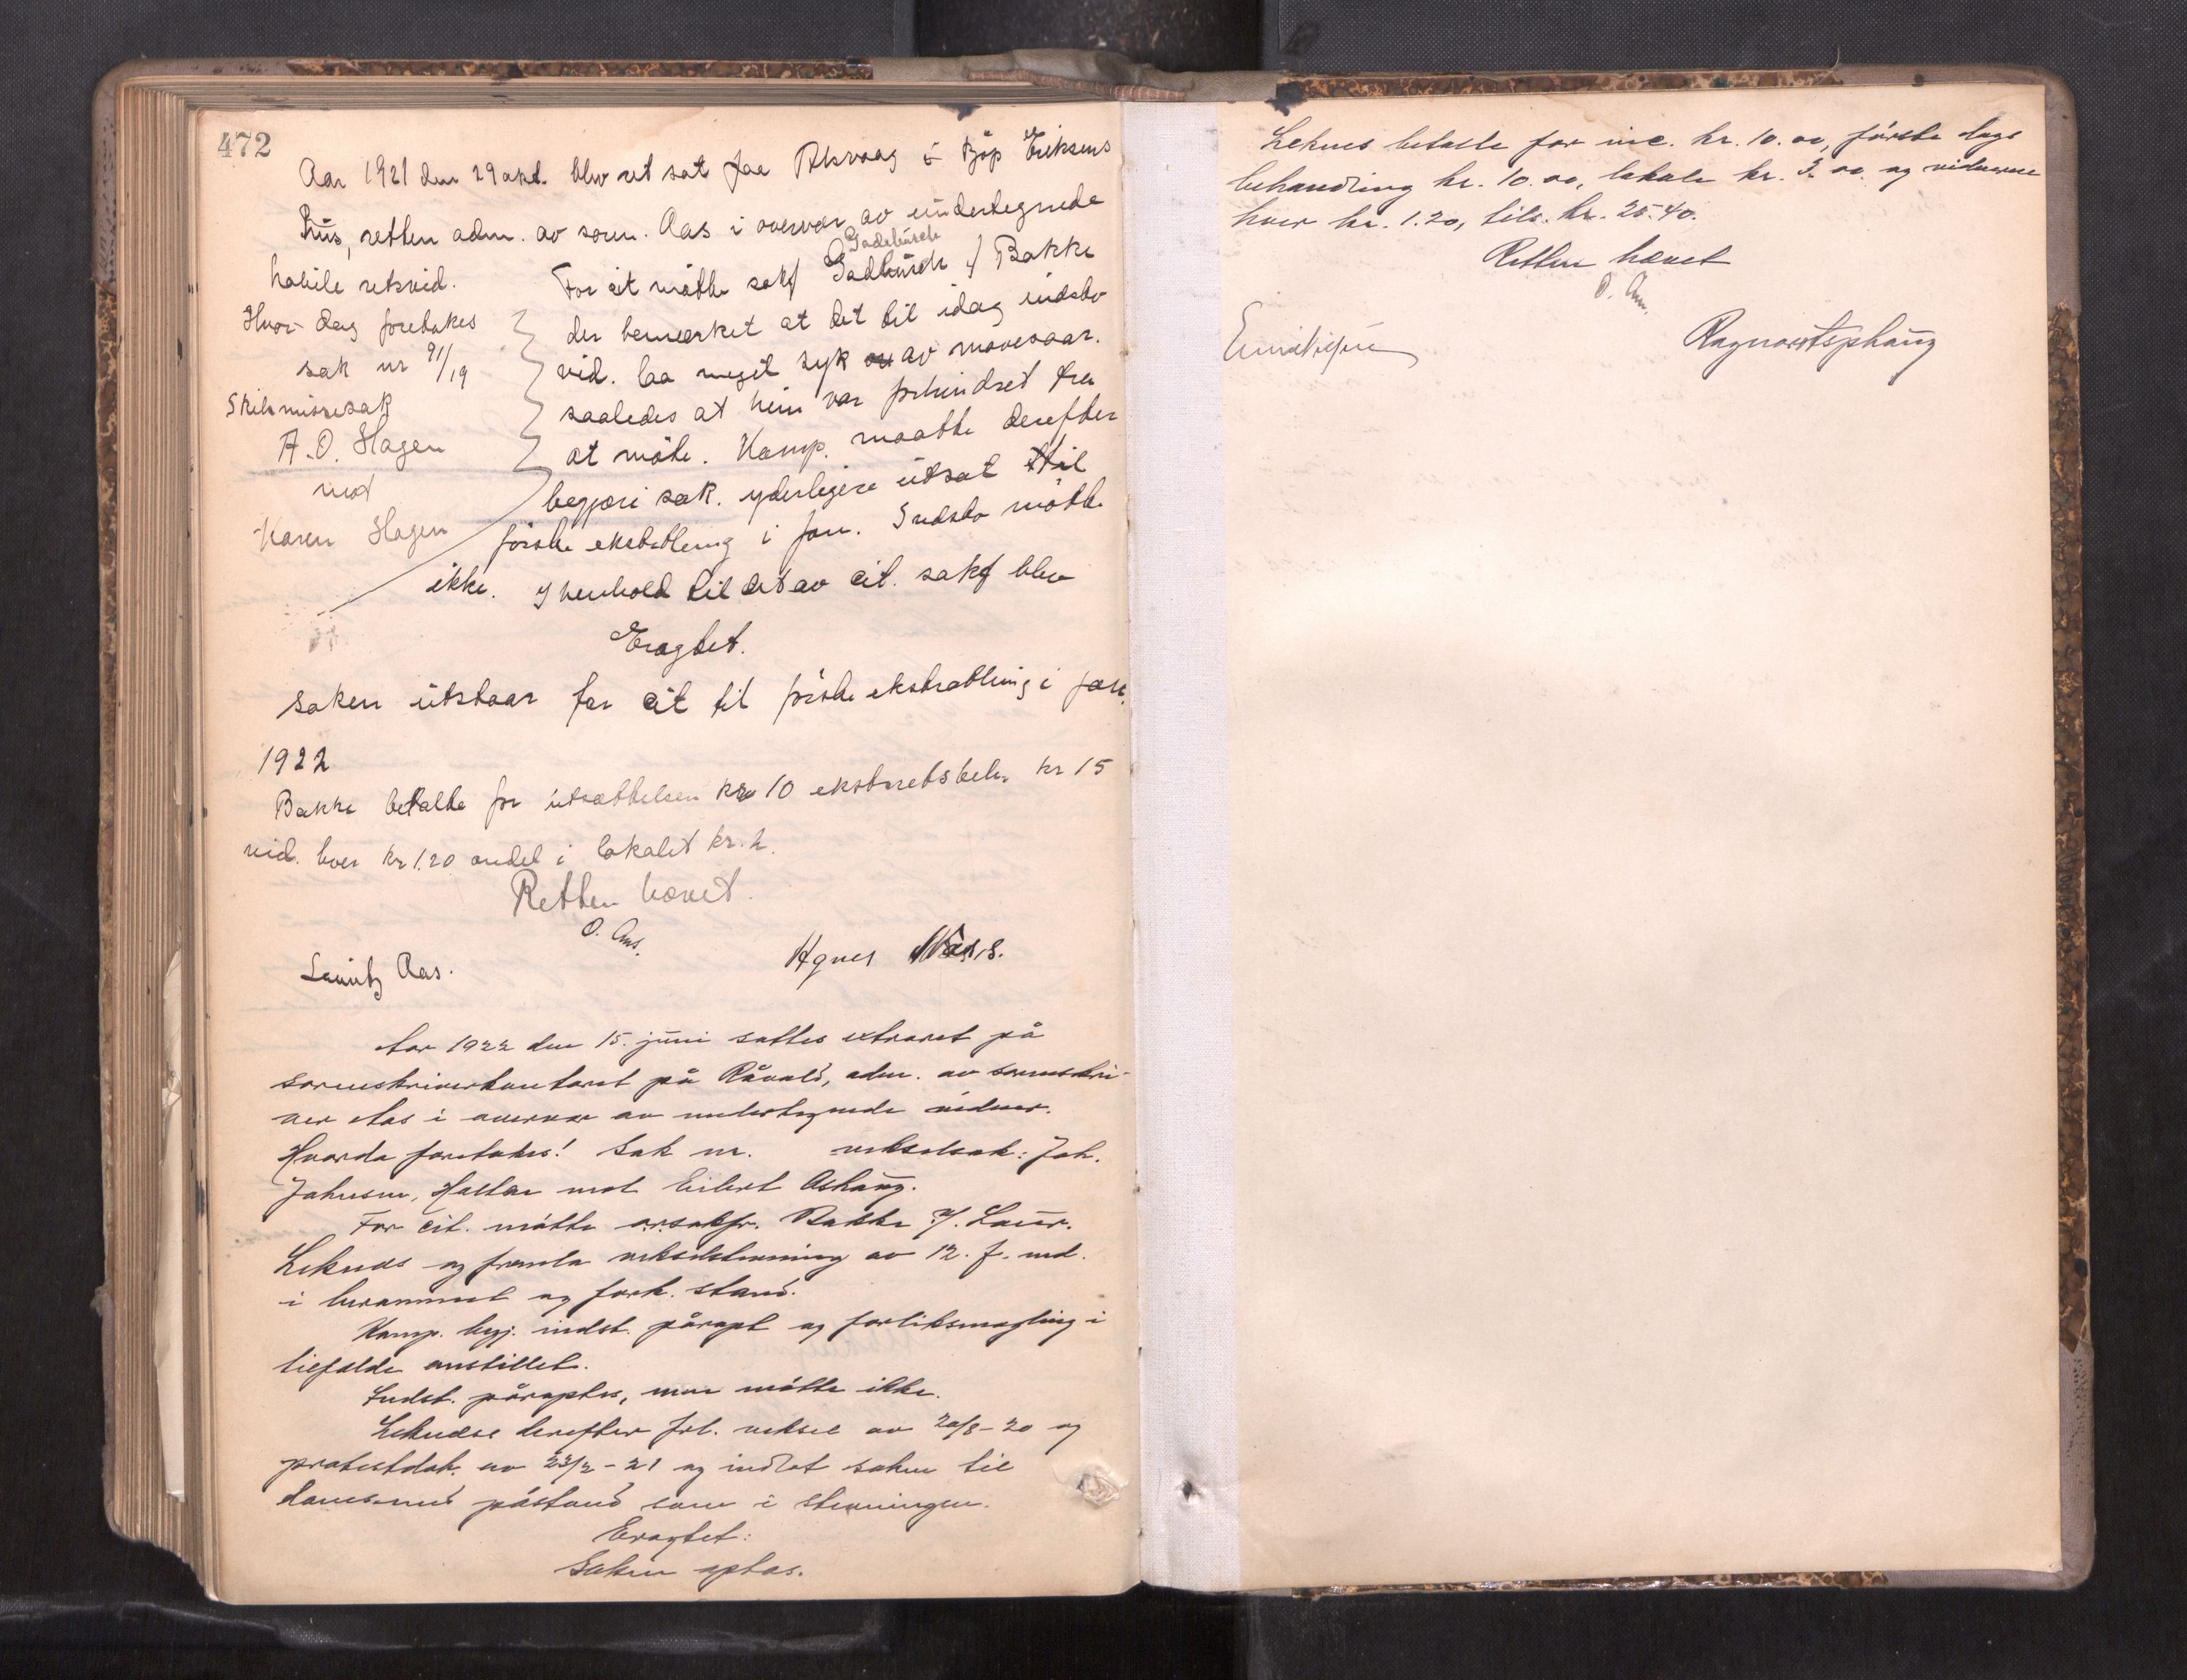 472
Aar 1921 den 29 okt. blev ret sat paa Risvaag i Kjøp Eriksens
hus, retten adm. av soren. Aas i overvær av undertegnede
habile retsvid.
Hvor da foretakes
sak nr 91/19
Skilsmissesak
A. O. Hagen
mot
Karen Hagen
Gadebusch
For cit møtte sakf Gadbusch f/ Bakke
der bemerket at det til idag indstv
vid. laa meget syk av mavesaar.
saaledes at hun var forhindret fra
at møte. Komp. maatte derefter
begjære sak. yderligere utsat til
første ekstratting i jan. Indstv møtte
ikke. I henhold til det av cit. sakf blev
Eragtet.
saken utstaar for cit til første ekstratting i jan.
1922
Bakke betalte for utsættelsen kr 10 ekstraretsbeh. kr 15
vid. hver kr 1.20 andel i lokalet kr. 2.
Retten hævet.
O. Aas.
Aas. Agnes
Aar 1922 den 15. juni sattes extraret på
sorenskriverkontoret på Råvold, adm. av sorenskri-
ver Aas i overvær av undertegnede vidner.
Hvorda foretakes: Sak nr. vekselsak: Joh.
Johnsen, Hallan mot Eilert Ashaug.
For cit. møtte o.r.sakfr. Bakke v/. Laur.
Leknes og fremla vekselstevning av 12. f. md.
i berammet og fork. stand.
Komp. begj. indst. påropt og forliksmegling i
tilfælde anstillet.
Indst. påroptes, men møtte ikke.
Leknes derefter frl. veksel av 20/8-20 og
protestdok. av 23/2-21 og indlot saken til
doms med påstand som i stevningen.
Eragtet:
Saken optas.
Leknes betalte for inc. kr. 10.00, første dags
behandling kr. 10.00, lokale kr. 3.00 og vidnerne
hver kr. 1.20, tils. kr. 25.40.
Retten hævet
O. Aas.